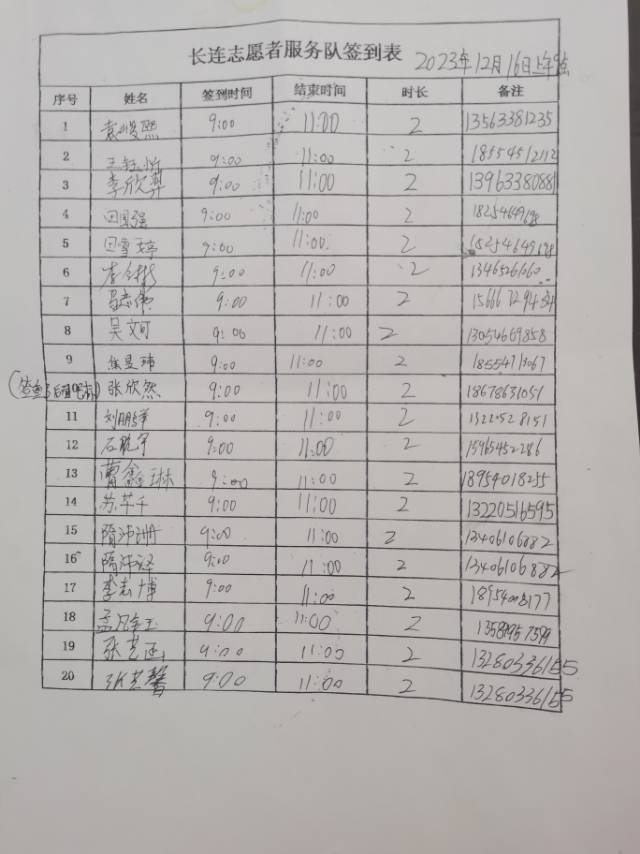 长连志愿者服务队签到表 2023年12月16日上午
序号 姓名 签到时间 结束时间 时长 备注
1 9:00 11:00 2 13563381235
2 9:00 11:00 2 18554512112
3 李欣霏 9:00 11:00 2 13963380881
4 田国强 9:00 11:00 2
5 田雪婷 9:00 11:00 2
6 9:00 11:00 2
7 9:00 11:00 2
8 吴文可 9:00 11:00 2 13054669858
9 焦昱玮 9:00 11:00 2
10 张欣然 9:00 11:00 2 18678631051
11 刘鹏 9:00 11:00 2
12 石 9:00 11:00 2
13 曹鑫琳 9:00 11:00 2 18954018255
14 苏芊千 9:00 11:00 2 13220516595
15 隋沛 9:00 11:00 2 13406106882
16 隋沛 9:00 11:00 2 13406106882
17 李志博 9:00 11:00 2
18 孟凡 9:00 11:00 2
19 张艺 9:00 11:00 2 13280336155
20 张艺馨 9:00 11:00 2 13280336155